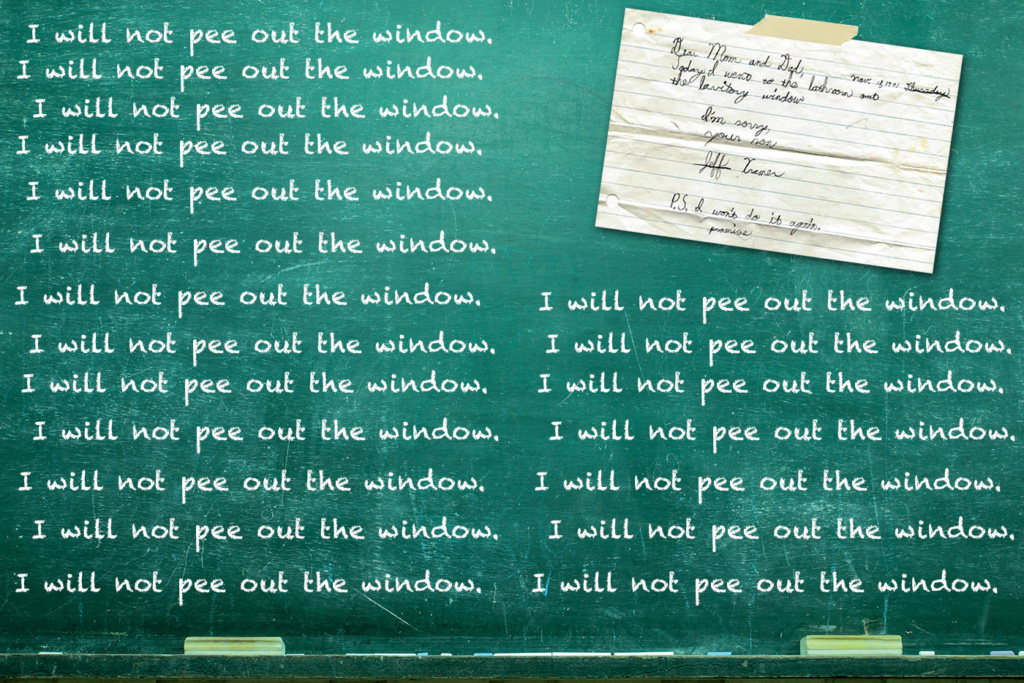 I will not pee out the window.
I will not pee out the window.
I will not pee out the window.
I will not pee out the window.
I will not pee out the window.
I will not pee out the window.
I will not pee out the window.
I will not pee out the window.
I will not pee out the window.
I will not pee out the window.
I will not pee out the window.
I will not pee out the window.
I will not pee out the window.
Nov. Thursday
Dear Mom and Dad,
Today I went to the bathroom out
the lavitory window
I'm sorry,
your son
Jeff Kramer
P.S. I won't do it again.
promise
I will not pee out the window.
I will not pee out the window.
I will not pee out the window.
I will not pee out the window.
I will not pee out the window.
I will not pee out the window.
I will not pee out the window.